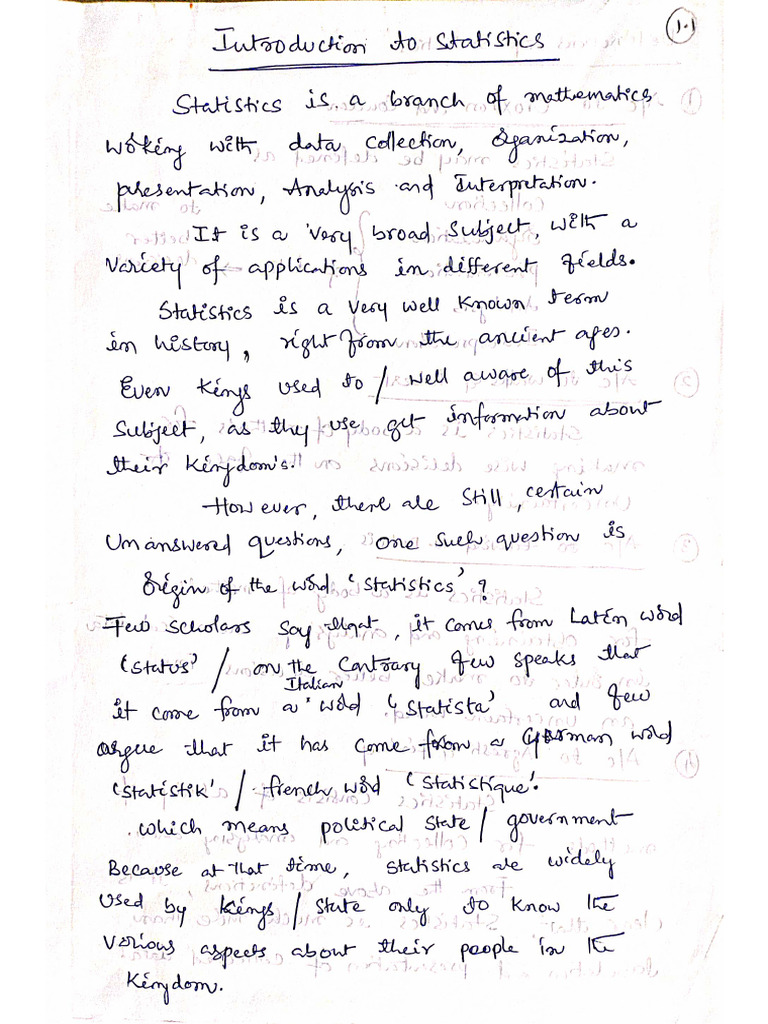 1.1
Introduction to Statistics
Statistics is a branch of mathematics
working with data collection, Organization,
presentation, Analysis and Interpretation.
It is a very broad subject, with a
variety of applications in different fields.
Statistics is a very well known term
in history, right from the ancient ages.
Even Kings used to / well aware of this
Subject, as they use get information about
their Kingdom's.
However, there are still, certain
Unanswered questions, one such question is
Origin of the word 'Statistics'?
Few scholars say that, it comes from Latin word
'Status' / on the Contrary few speaks that
it come from a Italian word 'Statista' and few
argue that it has come from a German word
'Statistik' / french word 'Statistique'.
which means political state / government
Because at that time, Statistics are widely
used by Kings / State only to know the
various aspects about their people in the
Kingdom.